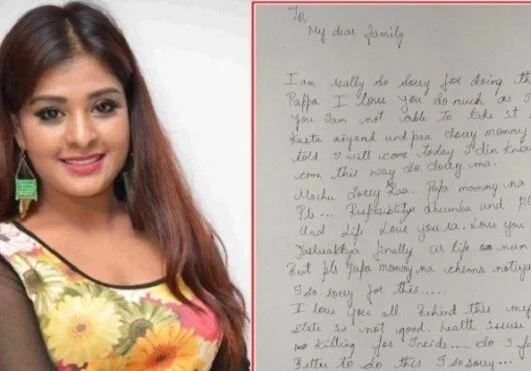 To,
My dear family
I am really so sorry for doing th
Pappa I love you so much as I
you I am not able to take it
Kasta aiyand und paa sorry mommy
told I will come today I din know
come this way so sorry ma.
Machu Sorry Raa.. Papa mommy na
Pls... Responsibility dhumba und pl
Und Life Love you ra. Love you
finally us life num
But pls Papa mommy na chenna
I so sorry for this.....
I love you all Behind this my
state is not good. health issues
killing for Inside..... so I f
Better to do this I so sorry...